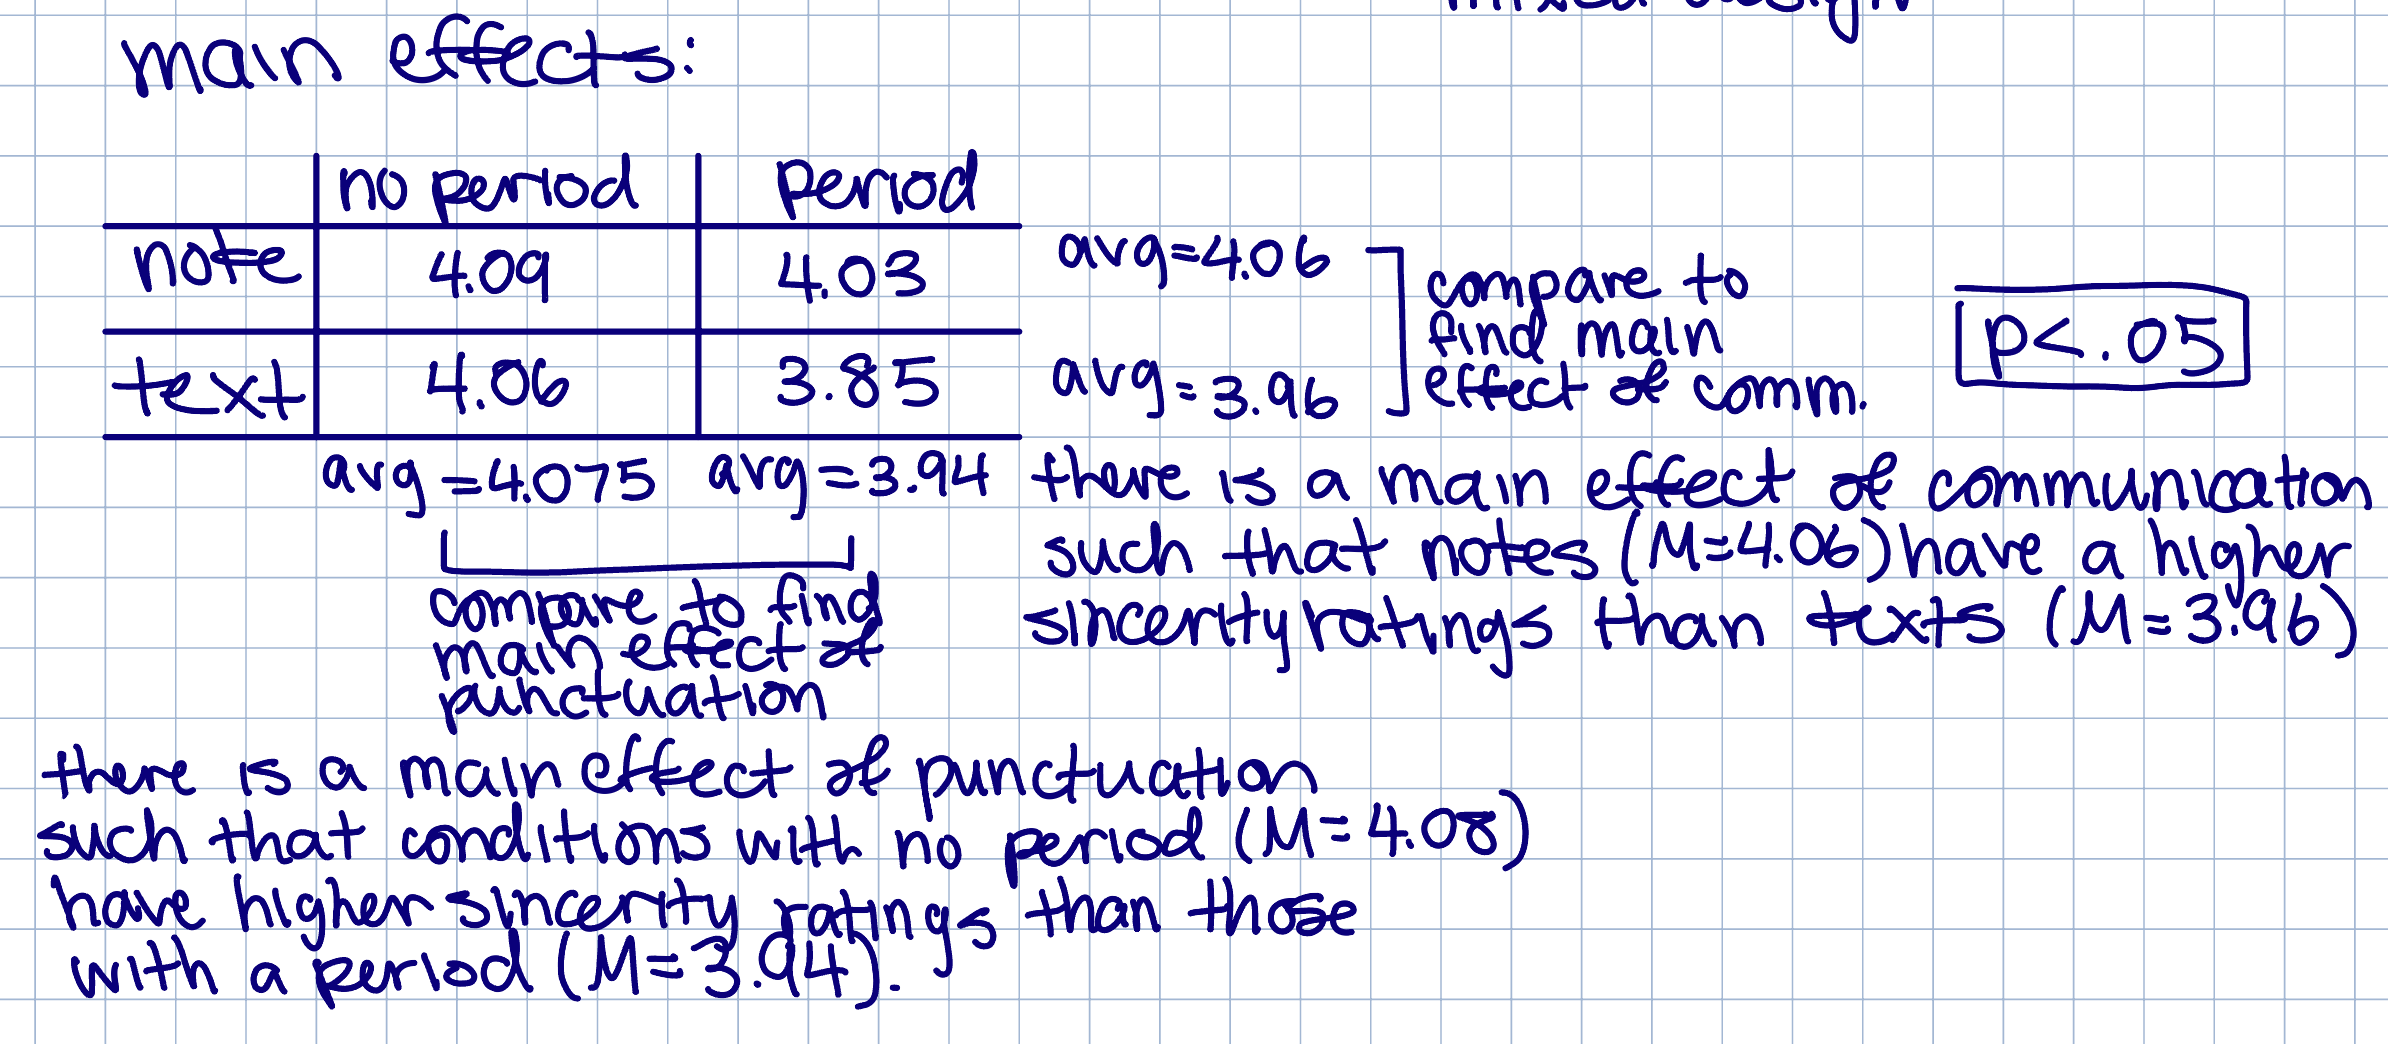 mixed design
main effects:
no period period
note 4.09 4.03 avg=4.06
text 4.06 3.85 avg=3.96
compare to
find main
effect of comm.
p<.05
avg=4.075 avg=3.94
compare to find
main effect of
punctuation
there is a main effect of communication
such that notes (M=4.06) have a higher
sincerity ratings than texts (M=3.96)
there is a main effect of punctuation
such that conditions with no period (M=4.08)
have higher sincerity ratings than those
with a period (M=3.94).